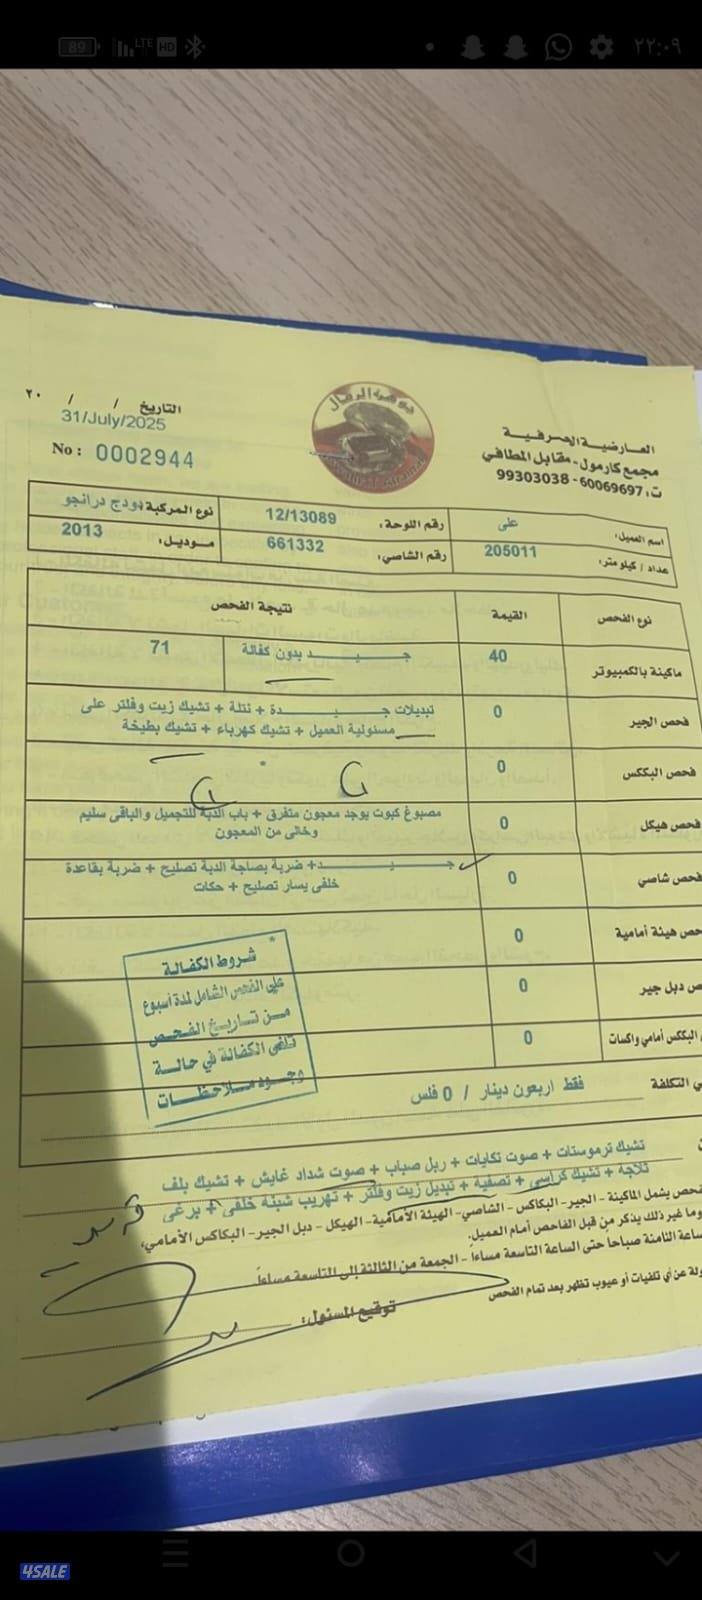 89 LTE HD ٢٢:٠٩
جوهرة الرمال
العارضية الحرفية
مجمع كارمول - مقابل المطافي
ت: 60069697 - 99303038
التاريخ / / ٢٠
31/July/2025
No : 0002944
اسم العميل: على رقم اللوحة: 12/13089 نوع المركبة: دودج درانجو
عداد / كيلو متر: 205011 رقم الشاصي: 661332 موديل: 2013
نوع الفحص القيمة نتيجة الفحص
ماكينة بالكمبيوتر 40 جيد بدون كفالة 71
فحص الجير 0 تبديلات جيدة + نتلة + تشيك زيت وفلتر على
مسئولية العميل + تشيك كهرباء + تشيك بطيخة
فحص البككس 0
فحص هيكل 0 مصبوغ كبوت يوجد معجون متفرق + باب الدبة للتجميل والباقى سليم
وخالى من المعجون
فحص شاصي 0 جيد + ضربة بصاجة الدبة تصليح + ضربة بقاعدة
خلفى يسار تصليح + حكات
حص هيئة أمامية 0
ص دبل جير 0
البككس أمامي واكسات 0
شروط الكفالة
على الفحص الشامل لمدة أسبوع
من تاريخ الفحص
تلغى الكفالة في حالة
وجود ملاحظات
ي التكلفة فقط اربعون دينار / 0 فلس
تشيك ترموستات + صوت تكايات + ربل صباب + صوت شداد غايش + تشيك بلف
ثلاجة + تشيك كراسى + تصفية + تبديل زيت وفلتر + تهريب شبنة خلفى + برغى
فحص يشمل الماكينة - الجير - البكاكس - الشاصي - الهيئة الأمامية - الهيكل - دبل الجير - البكاكس الأمامي،
وما غير ذلك يذكر من قبل الفاحص أمام العميل.
ساعة الثامنة صباحاً حتى الساعة التاسعة مساءاً - الجمعة من الثالثة إلى التاسعة مساءاً
ولة عن أي تلفيات أو عيوب تظهر بعد تمام الفحص
توقيع المسئول:
4SALE